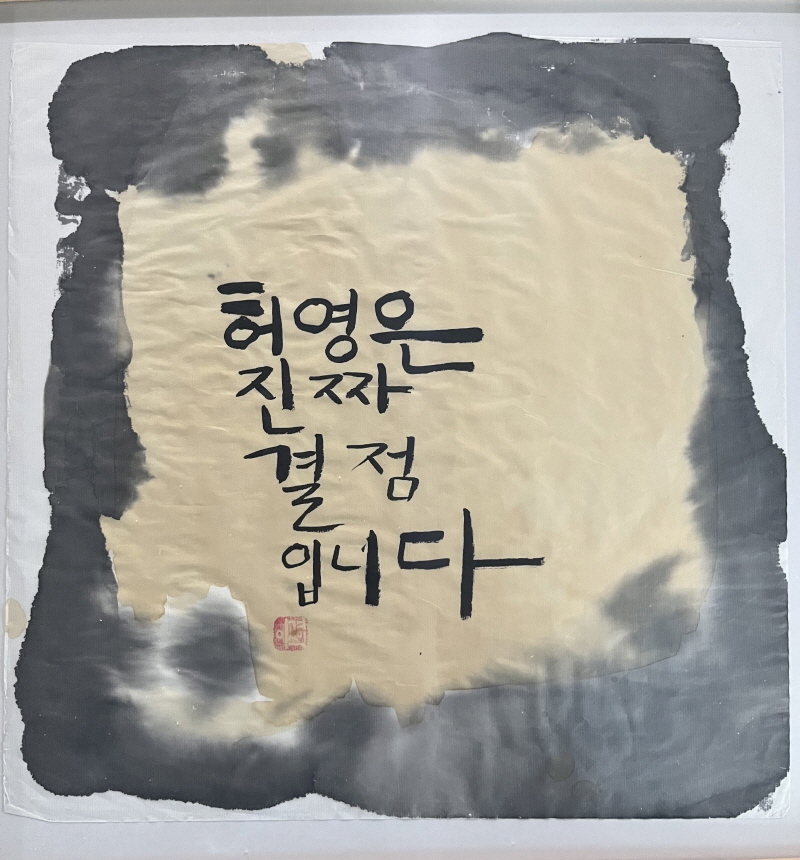 허영은
진짜
결점
입니다